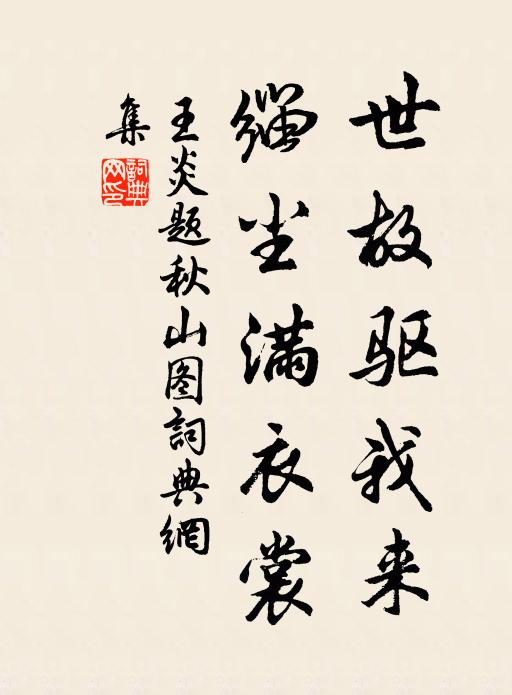 世故驱我来
缁尘满衣裳
王炎题秋山图詞典網
集
詞典網印